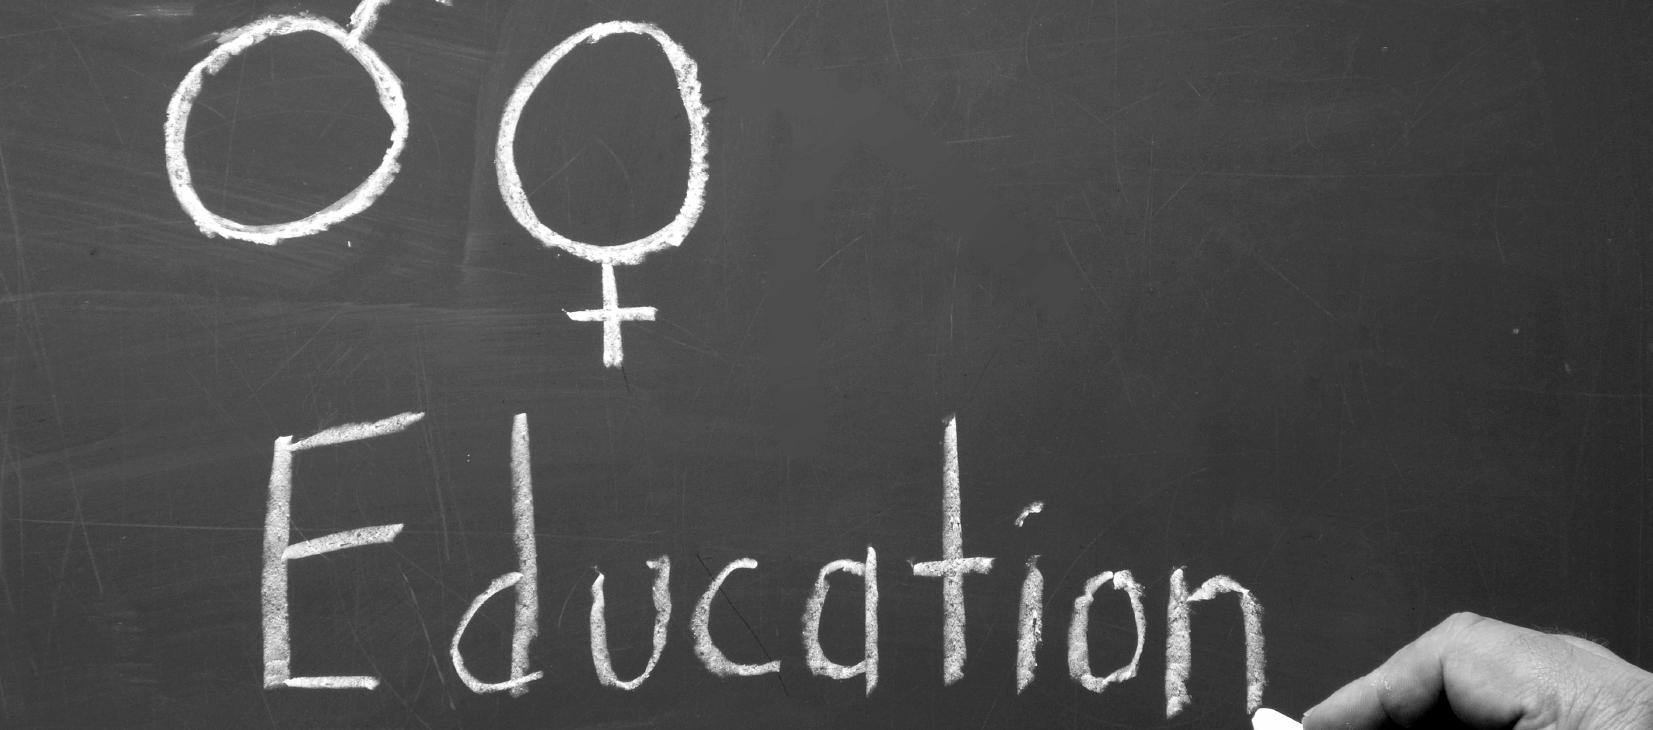 ♂ ♀
Education